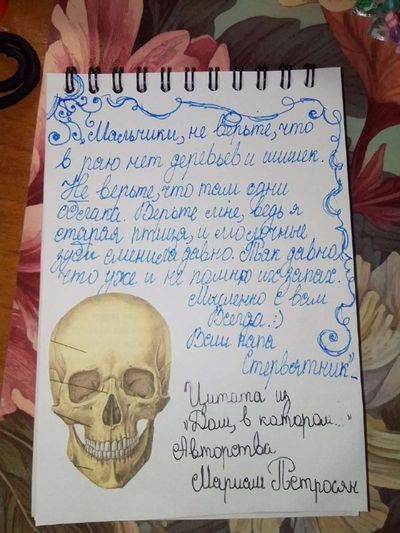 „Мальчики, не верьте, что
в раю нет деревьев и шишек.
Не верьте, что там одни
облака. Верьте мне, ведь я
старая птица, и молочные
зубы сменила давно. Так давно,
что уже и не помню их запах.
Мысленно с вами
Всегда. :)
Ваш папа
Стервятник"
Цитата из
"Дом, в котором..."
Авторства
Мариам Петросян